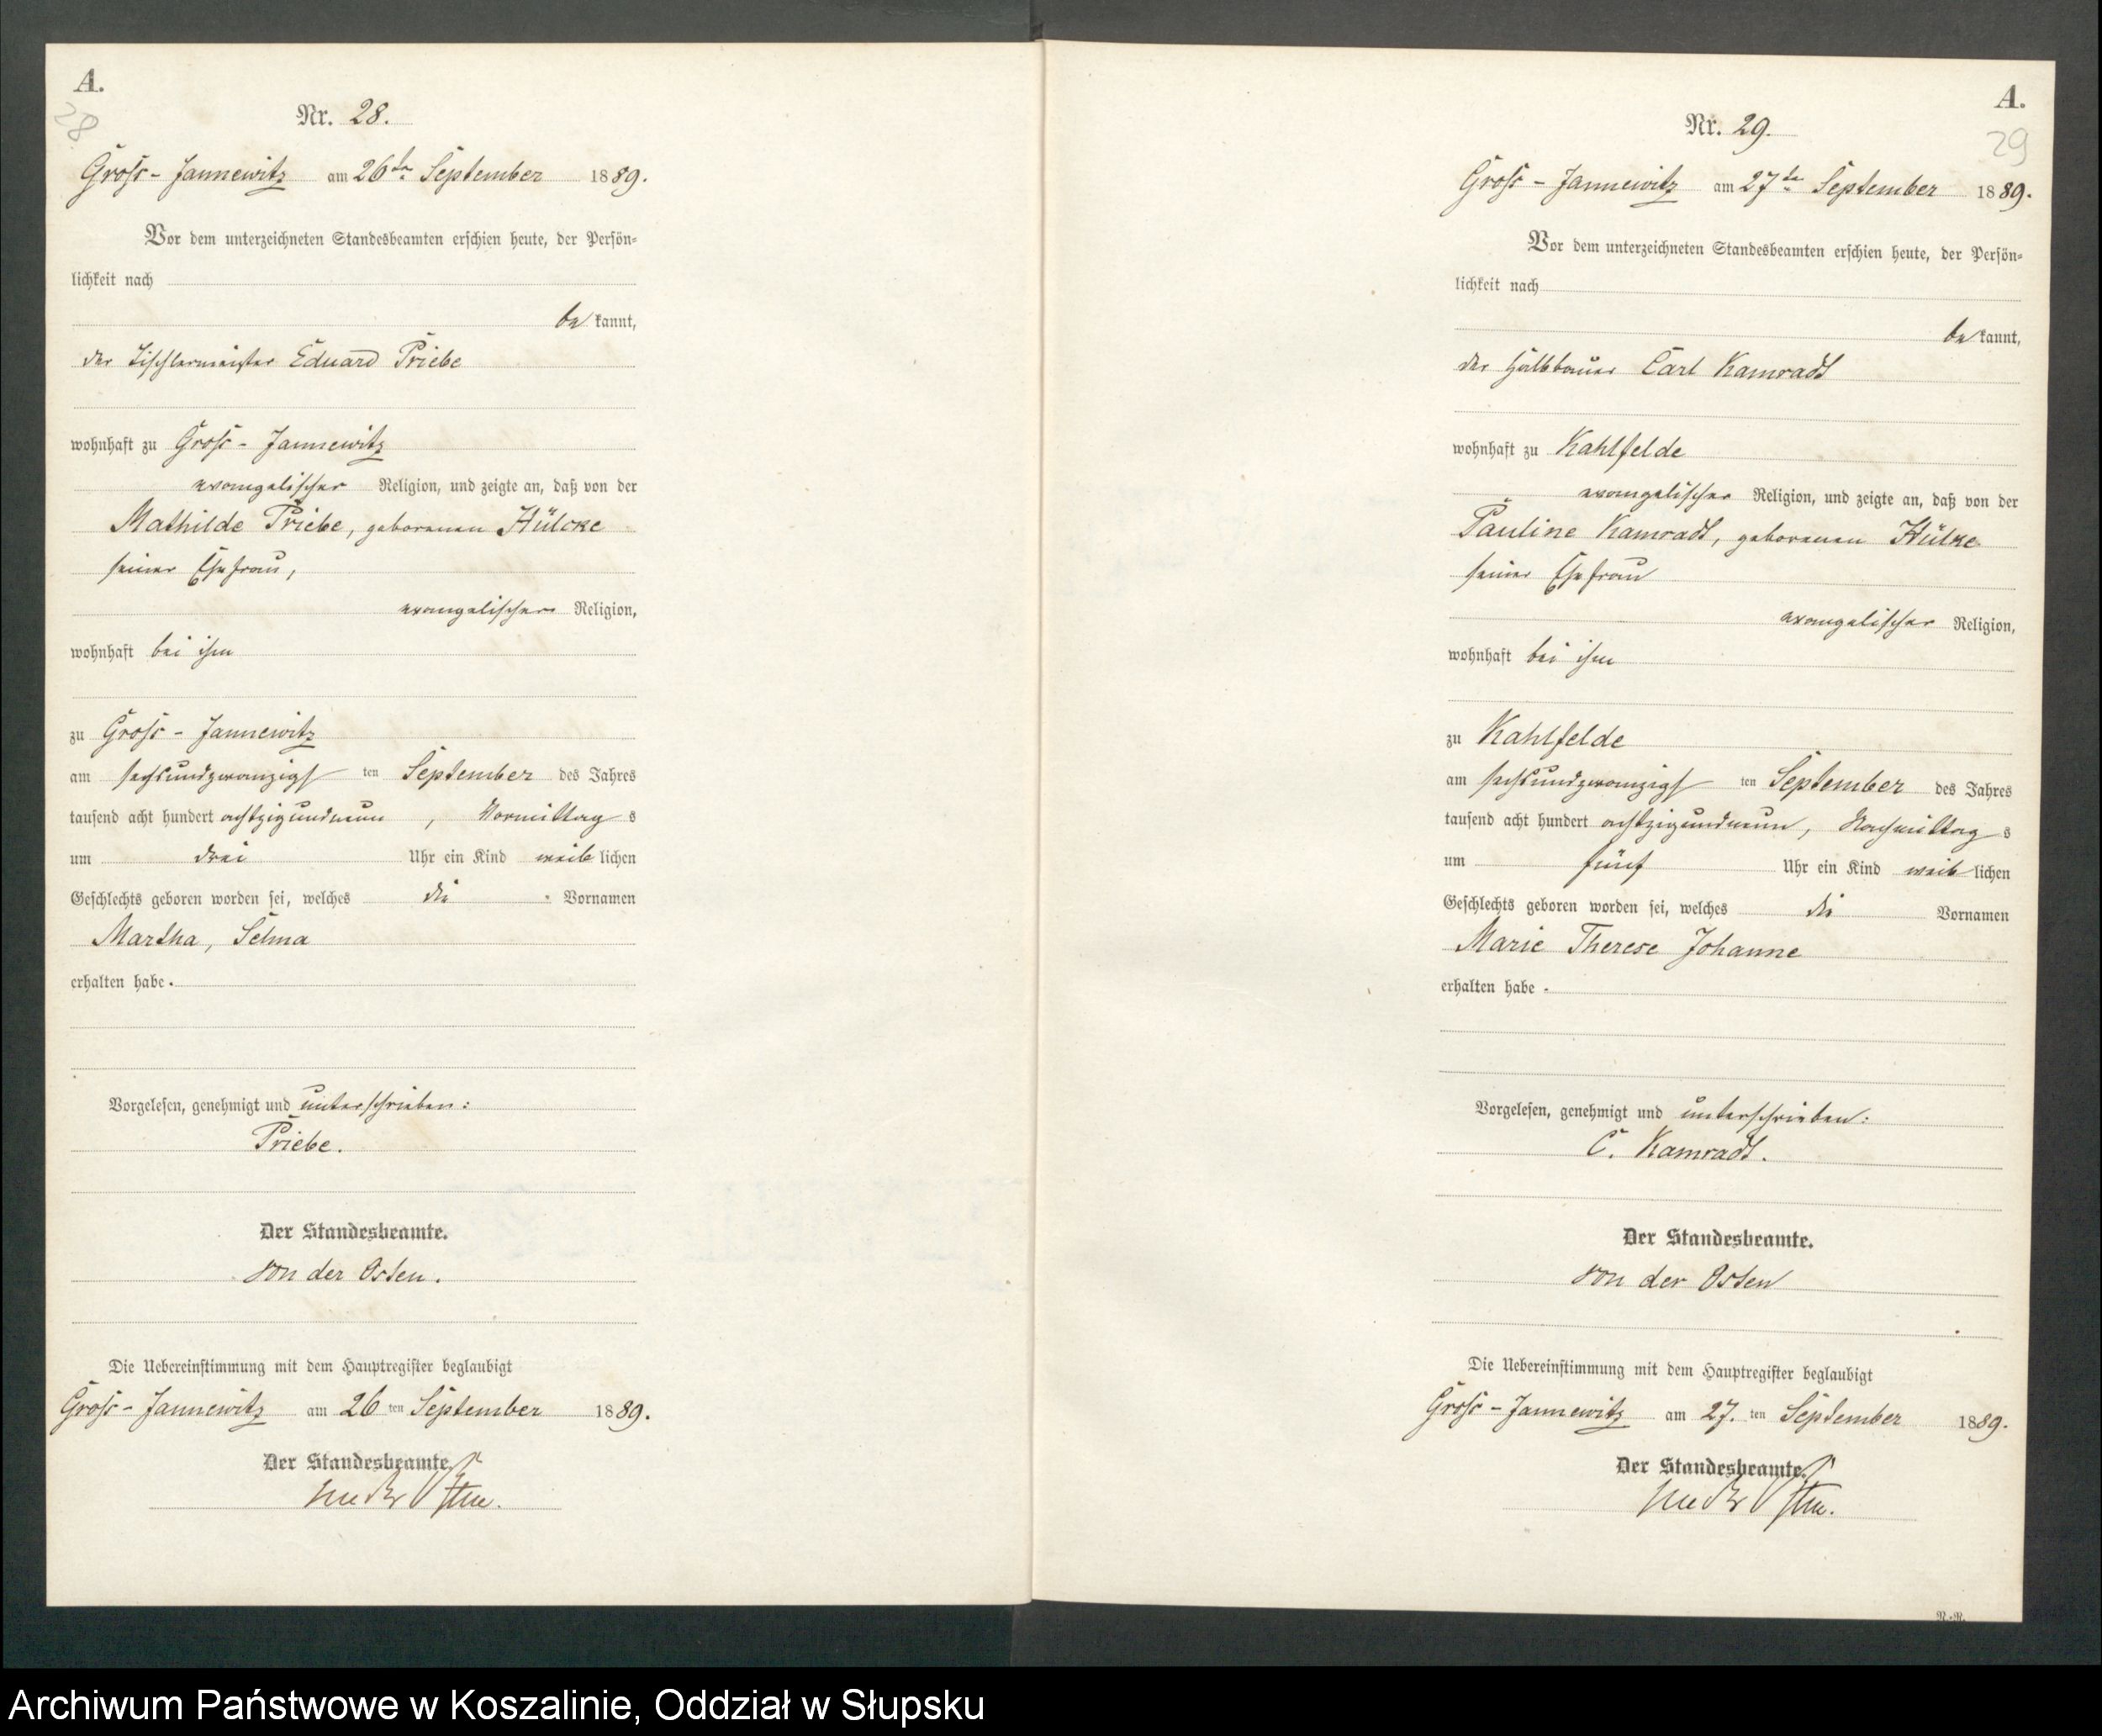 A.
28
Nr. 28.
Gross-Jannewitz am 26ten September 1889.
Vor dem unterzeichneten Standesbeamten erschien heute, der Persön-
lichkeit nach
bekannt,
der Tischlermeister Eduard Priebe
wohnhaft zu Gross-Jannewitz
evangelischer Religion, und zeigte an, daß von der
Mathilde Priebe, geborenen Hülcke
seiner Ehefrau,
evangelischer Religion,
wohnhaft bei ihm
zu Gross-Jannewitz
am sechsundzwanzigsten September des Jahres
tausend acht hundert achtzigundneun, Vormittags
um drei Uhr ein Kind weiblichen
Geschlechts geboren worden sei, welches die Vornamen
Martha, Selma
erhalten habe.
Vorgelesen, genehmigt und unterschrieben:
Priebe.
Der Standesbeamte.
von der Osten.
Die Uebereinstimmung mit dem Hauptregister beglaubigt
Gross-Jannewitz am 26ten September 1889.
Der Standesbeamte.
von der Osten.
A.
29
Nr. 29.
Gross-Jannewitz am 27ten September 1889.
Vor dem unterzeichneten Standesbeamten erschien heute, der Persön-
lichkeit nach
bekannt,
der Halbbauer Carl Kamradt
wohnhaft zu Kahlfelde
evangelischer Religion, und zeigte an, daß von der
Pauline Kamradt, geborenen Hülke
seiner Ehefrau
evangelischer Religion,
wohnhaft bei ihm
zu Kahlfelde
am sechsundzwanzigsten September des Jahres
tausend acht hundert achtzigundneun, Nachmittags
um fünf Uhr ein Kind weiblichen
Geschlechts geboren worden sei, welches die Vornamen
Marie Therese Johanne
erhalten habe.
Vorgelesen, genehmigt und unterschrieben:
C. Kamradt.
Der Standesbeamte.
von der Osten
Die Uebereinstimmung mit dem Hauptregister beglaubigt
Gross-Jannewitz am 27.ten September 1889.
Der Standesbeamte.
von der Osten.
R.-R.
Archiwum Państwowe w Koszalinie, Oddział w Słupsku